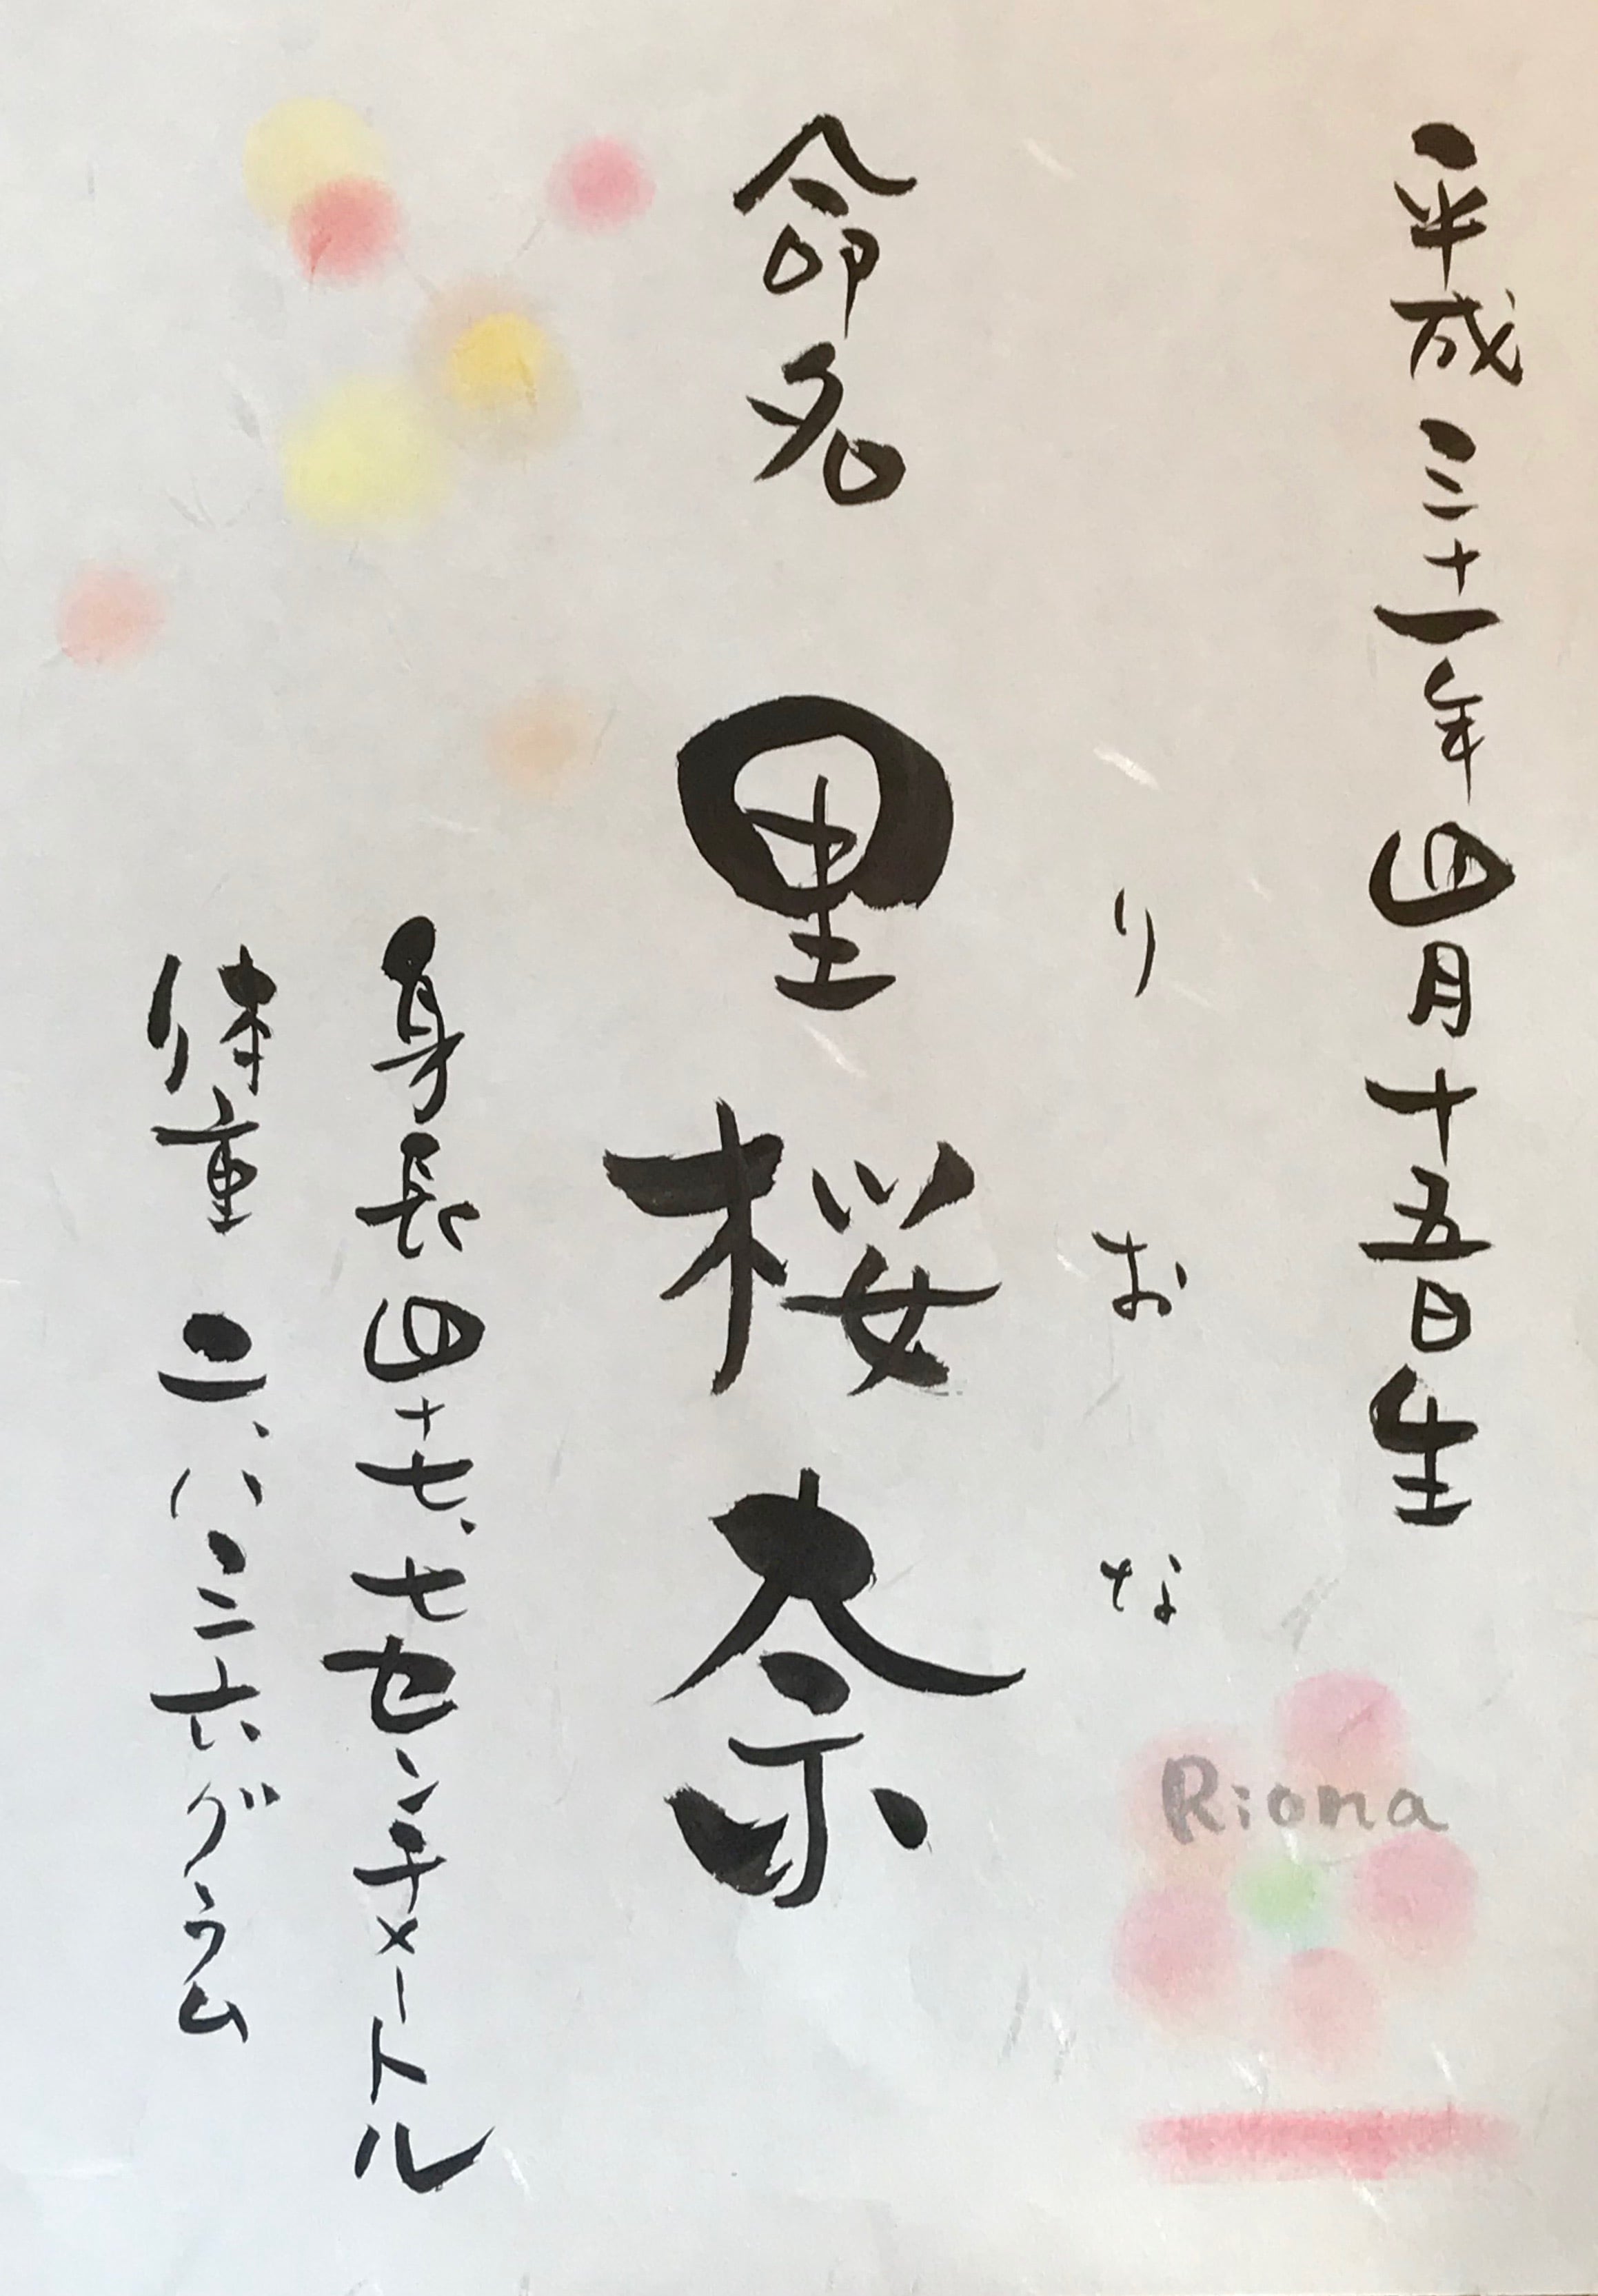 平成三十一年四月十五日生
りおな
命名 里桜奈
身長四十七、七センチメートル
体重 二、八三六グラム
Riona